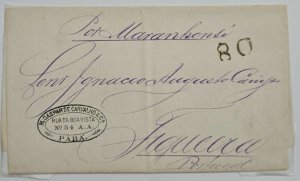 Por Maranhense
80
Ignacio Augusto
M. GASPAR DE CARVALHO & Co
RUA DA BOA VISTA
Nº 54 A.A.
PARÁ.
Figueira
Portugal